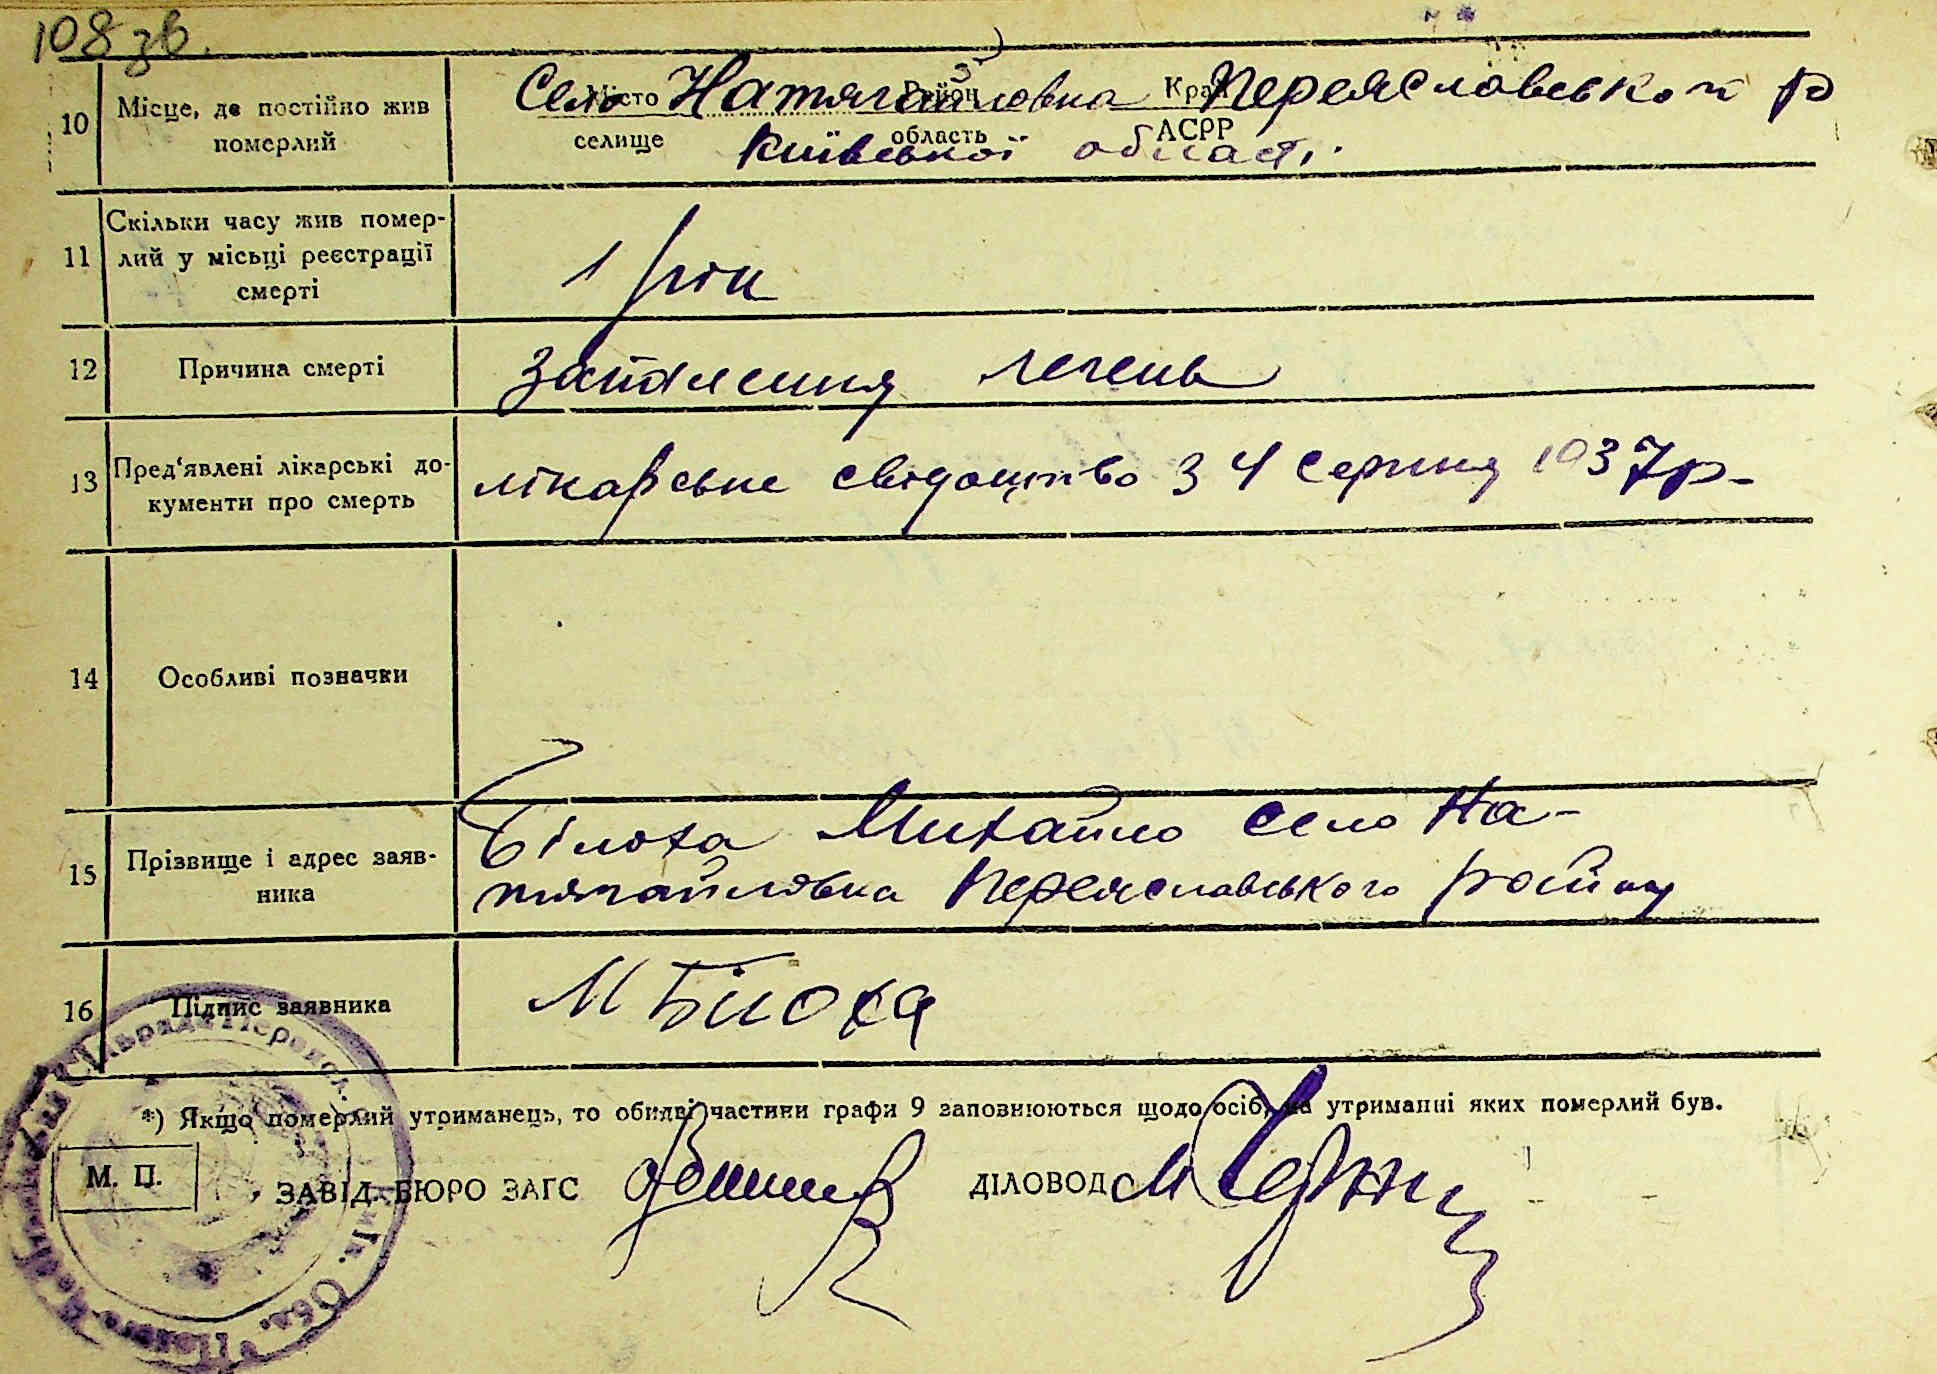 108 зв.
10 Місце, де постійно жив померлий
Місто Район Край
селище область АСРР
Село Натягайловка Переяславського р
Київської області.
11 Скільки часу жив помер-
лий у місьці реєстрації
смерті
1 рік
12 Причина смерті
Запалення легень
13 Пред'явлені лікарські до-
кументи про смерть
лікарське свідоцтво з 4 серпня 1937р-
14 Особливі позначки
15 Прізвище і адрес заяв-
ника
Білоха Михайло село На-
тягайловка Переяславського району
16 Підпис заявника
М Білоха
*) Якщо померлий утриманець, то обидві частини графи 9 заповнюються щодо осіб, на утриманні яких померлий був.
М. П.
ЗАВІД. БЮРО ЗАГС
ДІЛОВОД